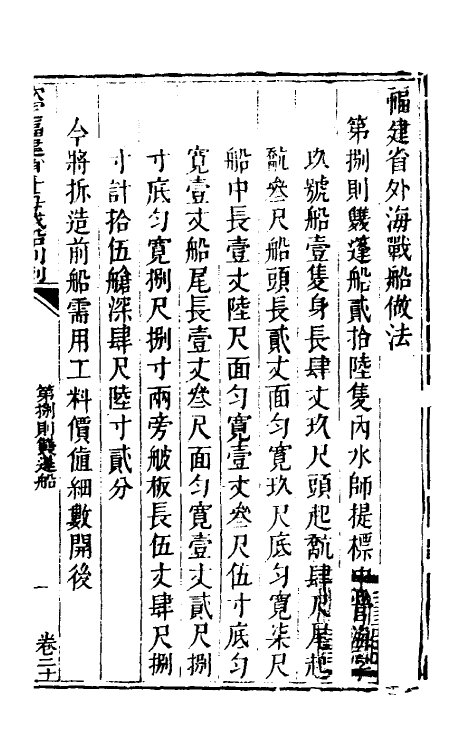 福建省外海戰船做法
第捌則雙蓬船貳拾陸隻內水師提標中營海字
玖號船壹隻身長肆丈玖尺頭起肆尺尾起
叄尺船頭長貳丈面勻寬玖尺底勻寬柒尺
船中長壹丈陸尺面勻寬壹丈叄尺伍寸底勻
寬壹丈船尾長壹丈叄尺面勻寬壹丈貳尺捌
寸底勻寬捌尺捌寸兩旁板長伍丈肆尺捌
寸計拾伍艙深肆尺陸寸貳分
今將拆造前船需用工料價值細數開後
第捌則雙蓬船
一
卷二十